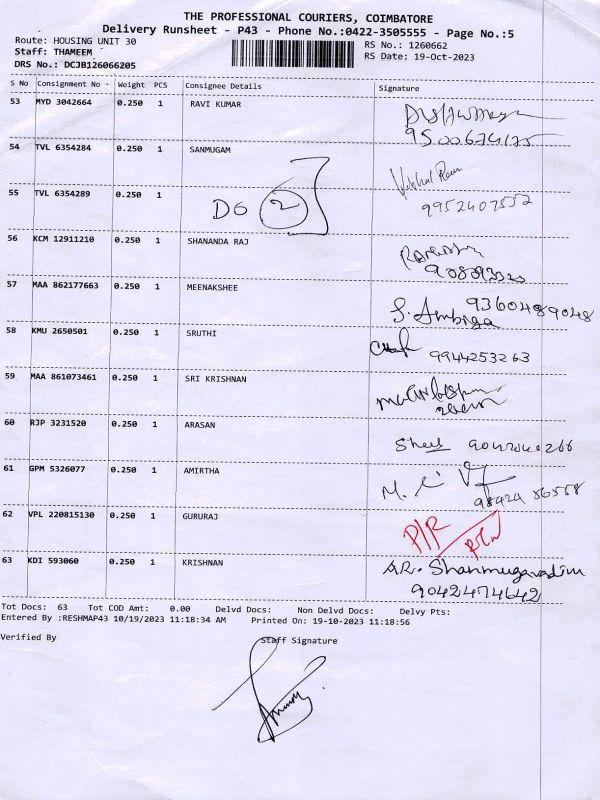 THE PROFESSIONAL COURIERS, COIMBATORE
Delivery Runsheet - P43 - Phone No.:0422-3505555 - Page No.:5
Route: HOUSING UNIT 30 RS No.: 1260662
Staff: THAMEEM RS Date: 19-Oct-2023
DRS No.: DCJB126066205
S No Consignment No Weight PCS Consignee Details Signature
53 MYD 3042664 0.250 1 RAVI KUMAR
54 TVL 6354284 0.250 1 SANMUGAM
55 TVL 6354289 0.250 1 9952407552
DG 2
56 KCM 12911210 0.250 1 SHANANDA RAJ
57 MAA 862177663 0.250 1 MEENAKSHEE 9360489048
S. Ambiga
58 KMU 2650501 0.250 1 SRUTHI
9944253263
59 MAA 861073461 0.250 1 SRI KRISHNAN
60 RJP 3231520 0.250 1 ARASAN
61 GPM 5326077 0.250 1 AMIRTHA
62 VPL 220815130 0.250 1 GURURAJ P/R
63 KDI 593060 0.250 1 KRISHNAN AR. Shanmugavadivu
9042474642
Tot Docs: 63 Tot COD Amt: 0.00 Delvd Docs: Non Delvd Docs: Delvy Pts:
Entered By :RESHMAP43 10/19/2023 11:18:34 AM Printed On: 19-10-2023 11:18:56
Verified By Staff Signature